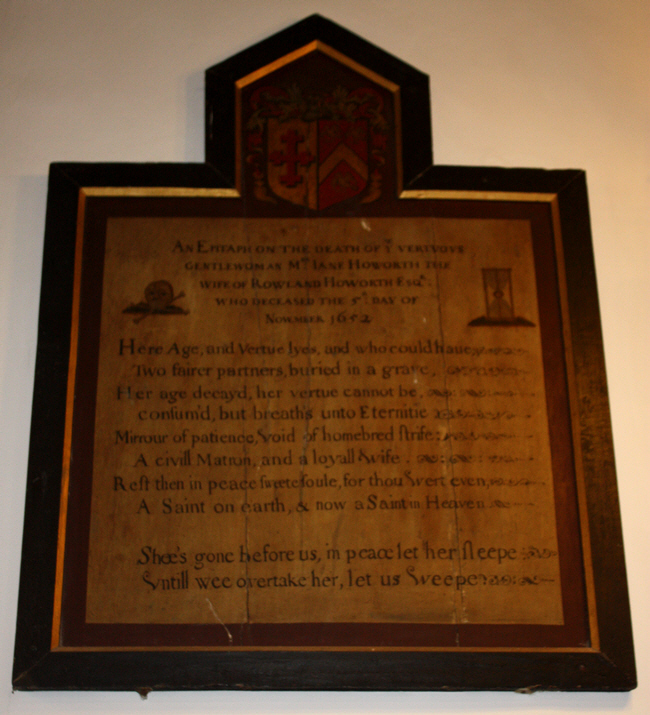 AN EPITAPH ON THE DEATH OF Yᵉ VERTVOVS
GENTLEWOMAN Mʳⁱˢ IANE HOWORTH THE
WIFE OF ROWLAND HOWORTH ESQʳ:
WHO DECEASED THE 5ᵗ DAY OF
NOVEMBER 1652
Here Age, and Vertue lyes, and who could haue
Two fairer partners, buried in a grave,
Her age decayd, her vertue cannot be,
conſum'd, but breath's unto Eternitie
Mirrour of patience, void of homebred ſtrife:
A civill Matron, and a loyall wife.
Reſt then in peace ſweete ſoule, for thou wert even,
A Saint on earth, & now a Saint in Heaven
Shee's gone before us, in peace let her ſleepe
Vntill wee overtake her, let us weepe